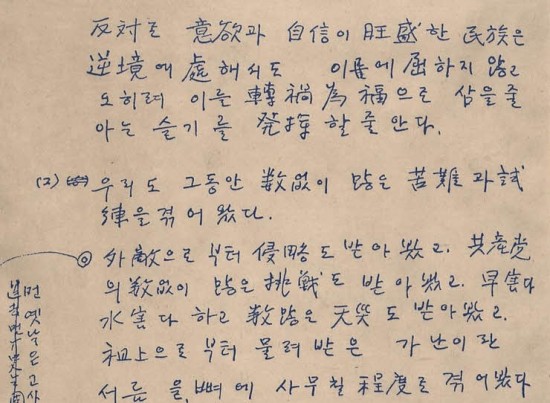 反対로 意欲과 自信이 旺盛한 民族은
逆境에 處해서도 이에 屈하지 않고
오히려 이를 轉禍為福으로 삼을줄
아는 슬기를 発揮할줄 안다.
(2) 우리도 그동안 数없이 많은 苦難과 試
練을 겪어 왔다.
◎ 外敵으로부터 侵略도 받아 왔고. 共産党
의 数없이 많은 挑戦도 받아 왔고. 旱害다
水害다 하고 数많은 天災도 받아왔고.
祖上으로부터 물려 받은 가난이란
서름을 뼈에 사무칠 程度로 겪어왔다
먼 옛날은 고사